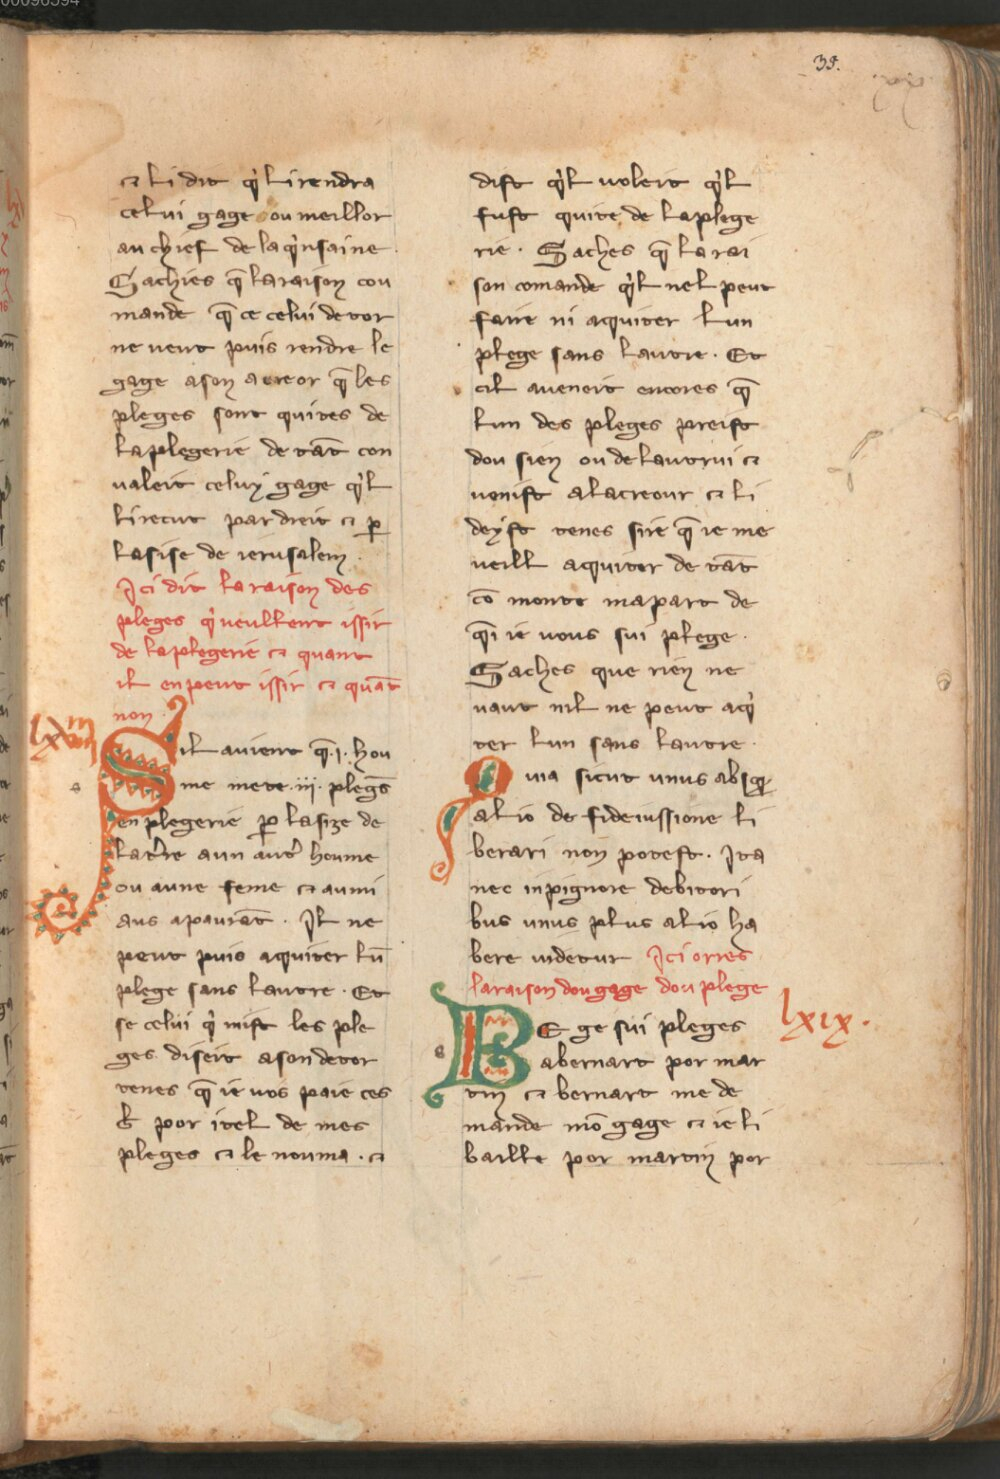 39.
⁊ li dit q̇l li rendra
celui gage ou meillor
au chief de la q̇nsaine
Sachies q̄ la raison cou
mande q̄ ce celui detor
ne veut puis rendre le
gage a son acreor q̄ les
pleges sont quites de
la plegerie de tāt con
valeit celuy gage q̇l
li recut par dreit ⁊ ꝑ
lasise de ierusalem.
Ici dit la raison des
pleges q̇ veullent issir
de la plegerie ⁊ quant
il en peut issir ⁊ quāt
non.
lxviii
Sil avient q̄ .i. hou
me mete .iii. pleges
en plegerie ꝑ lasize de
la tr̄e a un autr̄ houme
ou a une feme ⁊ aumi
aus apaurāt. Il ne
peut puis aquiter lū
plege sans lautre. Et
se celui q̇ mist les ple
ges diseit a son detor
tenes q̄ ie vos paie ces
b̄ por itel de mes
pleges ⁊ le nouma. ⁊
dist q̇l voleit q̇l
fust quite de la plege
rie. Saches q̄ la rai
son comande q̇l nel peut
faire ni aquiter lun
plege sans lautre. Et
cil aveneit encores q̄
lun des pleges preist
dou sien ou de lautrui ⁊
venist a lacreour ⁊ li
deyst tenes sire q̄ ie me
veill aquiter de tāt
cō monte ma part de
q̄i ie vous sui plege.
Saches que rien ne
vaut nil ne peut aq̇
ter lun sans lautre.
Quia sicut unus absqꝫ
alio de fideiussione li
berari non potest. Ita
nec in pignore debitori
bus unus plus alio ha
bere videtur Ici orres
la raison dou gage dou plege
lxix.
BE ge sui pleges
a bernart por mar
tin ⁊ bernart me de
mande mō gage ⁊ ie li
baille por martin por